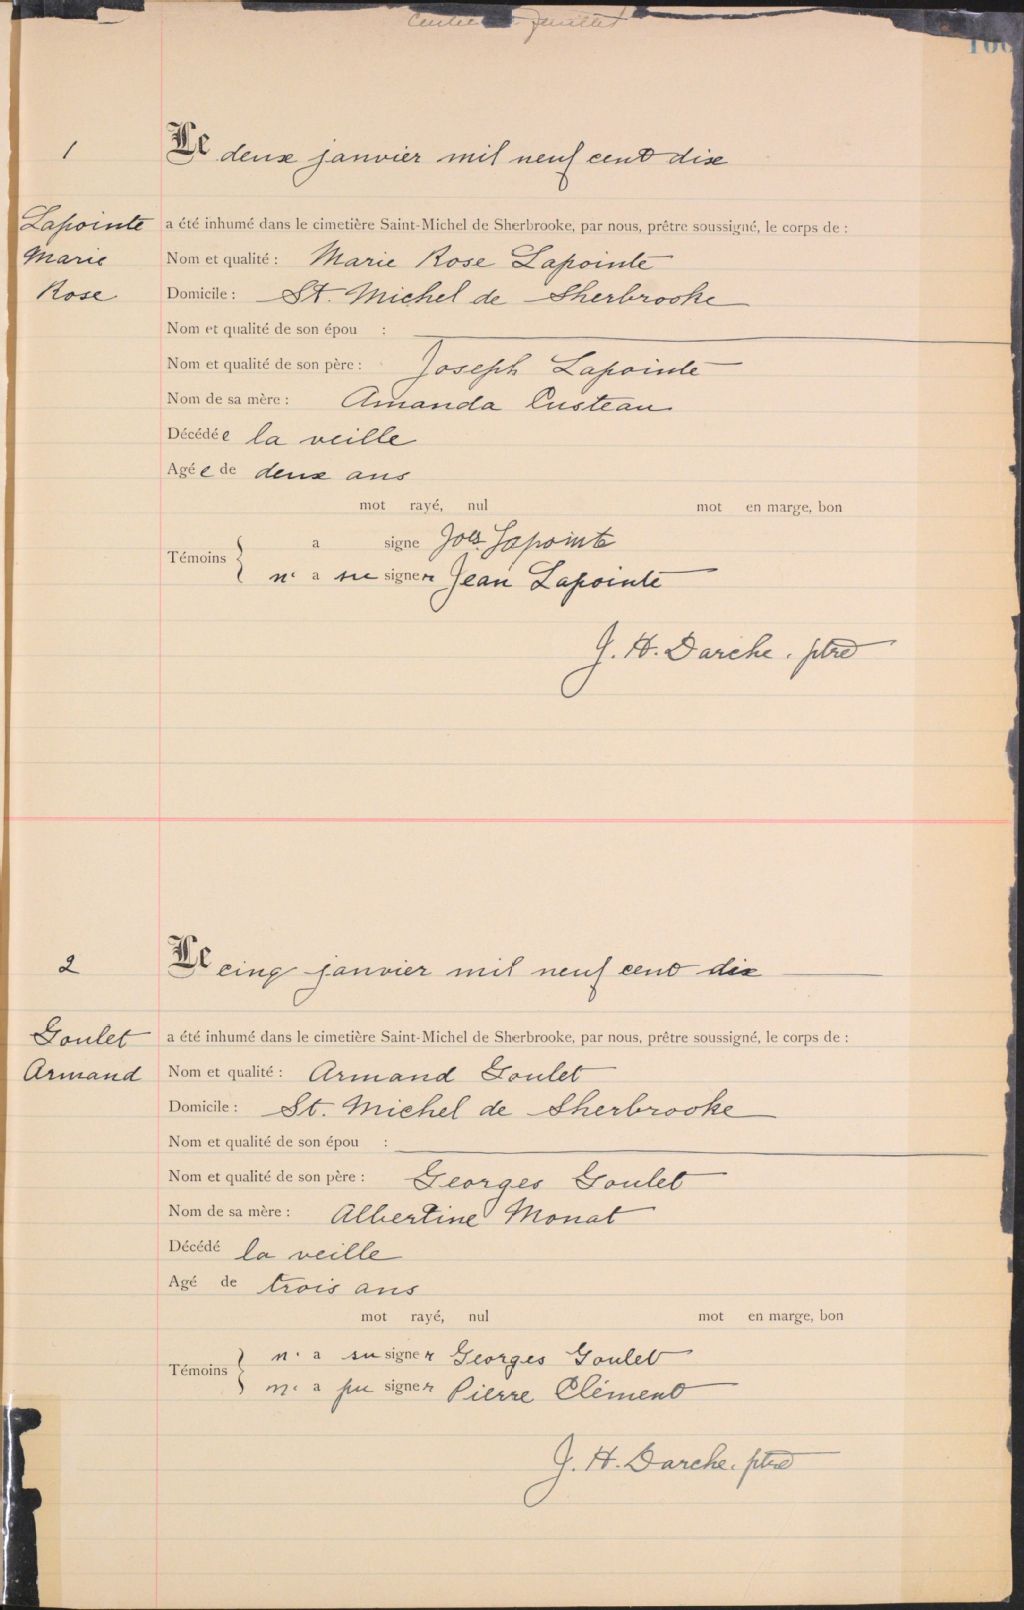 feuillet
1
Le deux janvier mil neuf cent dix
Lapointe
Marie
Rose
a été inhumé dans le cimetière Saint-Michel de Sherbrooke, par nous, prêtre soussigné, le corps de :
Nom et qualité : Marie Rose Lapointe
Domicile : St. Michel de Sherbrooke
Nom et qualité de son épou :
Nom et qualité de son père : Joseph Lapointe
Nom de sa mère : Amanda Custeau
Décédée la veille
Agée de deux ans
mot rayé, nul mot en marge, bon
Témoins
a signe Jos Lapointe
n' a su signer Jean Lapointe
J. H. Darche. ptre
2
Le cinq janvier mil neuf cent dix
Goulet
Armand
a été inhumé dans le cimetière Saint-Michel de Sherbrooke, par nous, prêtre soussigné, le corps de :
Nom et qualité : Armand Goulet
Domicile : St. Michel de Sherbrooke
Nom et qualité de son épou :
Nom et qualité de son père : Georges Goulet
Nom de sa mère : Albertine Monat
Décédé la veille
Agé de trois ans
mot rayé, nul mot en marge, bon
Témoins
n' a su signer Georges Goulet
n' a pu signer Pierre Clément
J. H. Darche. ptre